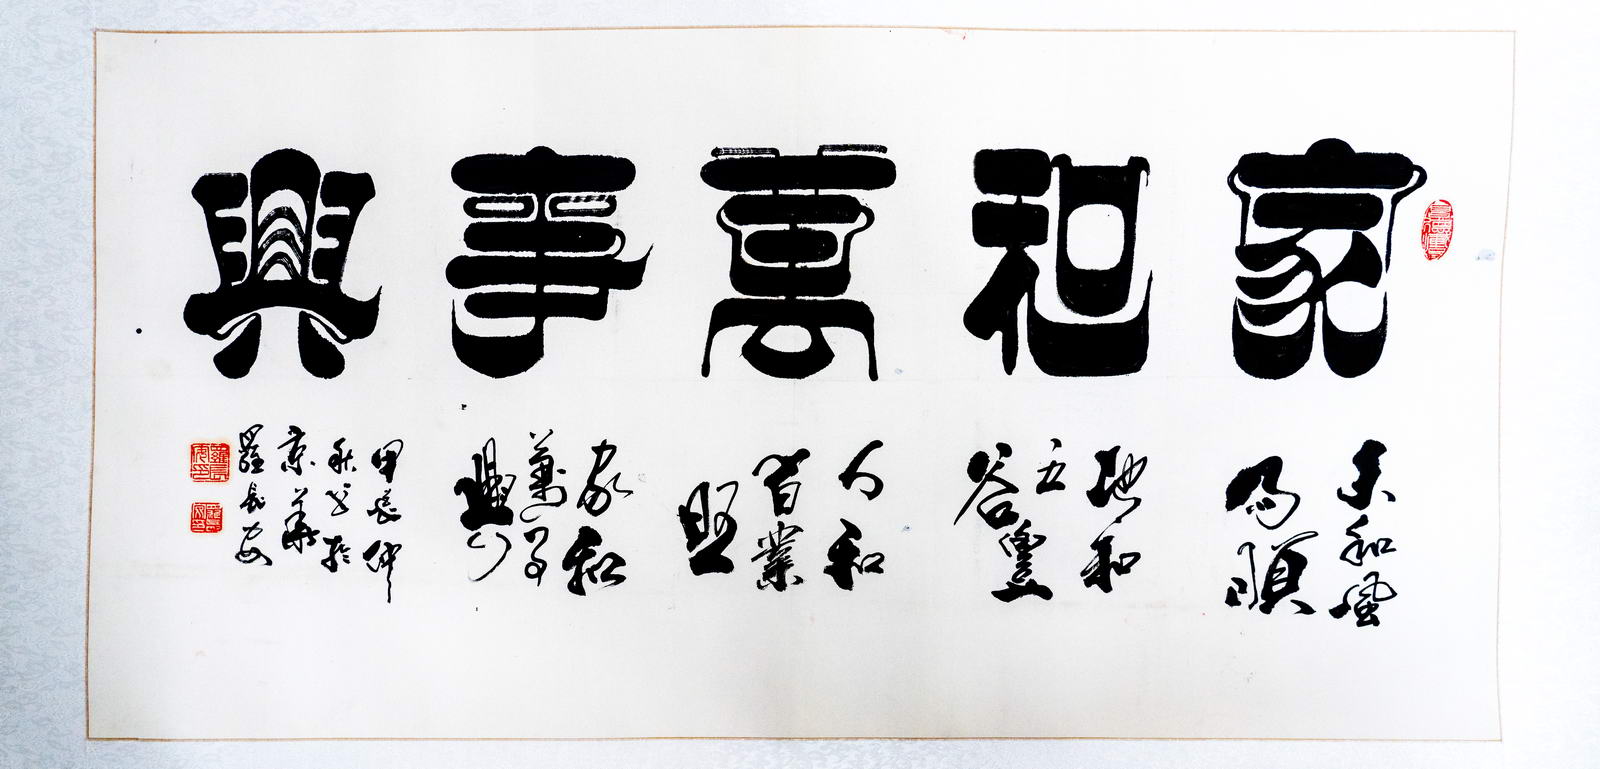 家和萬事興
天和風
雨順
地和
五
谷豐
人和
百業
旺
家和
萬事
興
甲辰仲
秋書於
京華
羅長安